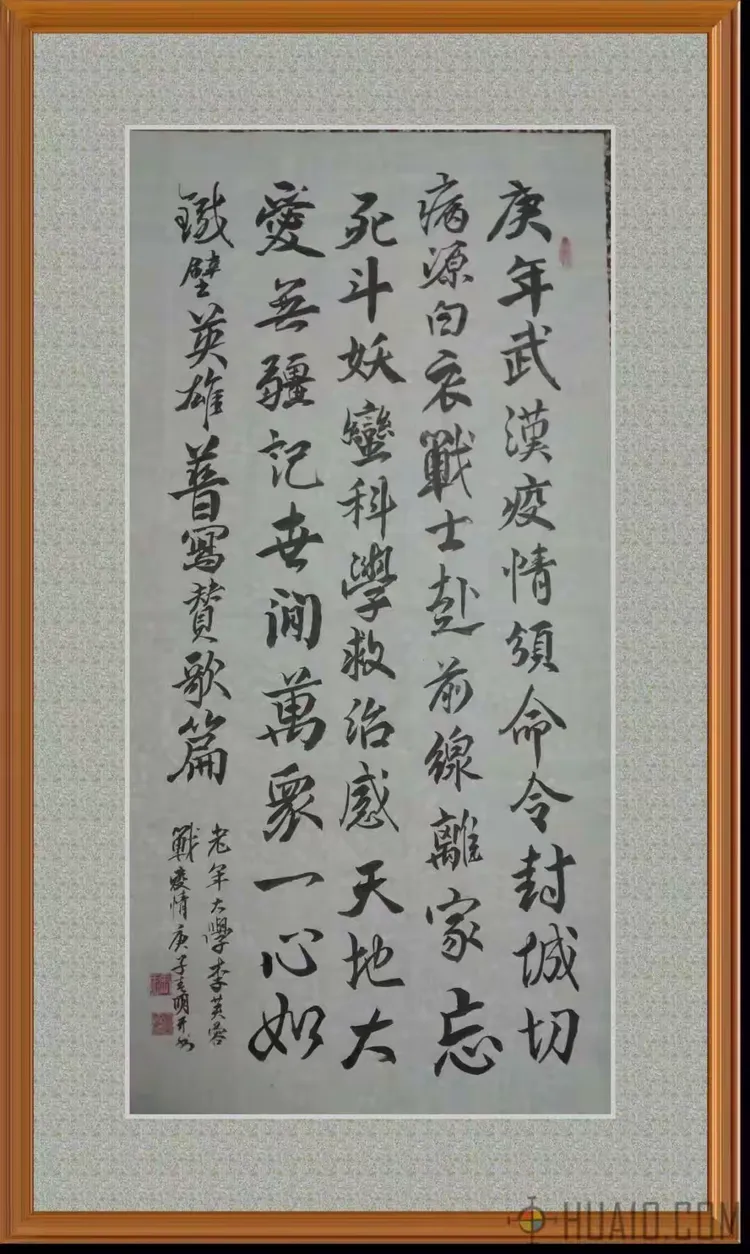 庚年武漢疫情領命令封城切
病源白衣戰士赴前線離家忘
死斗妖蠻科學救治感天地大
愛無疆記世間萬眾一心如
鐵壁英雄普寫贊歌篇
老年大學李芙蓉
戰疫情庚子
HUAIO.COM